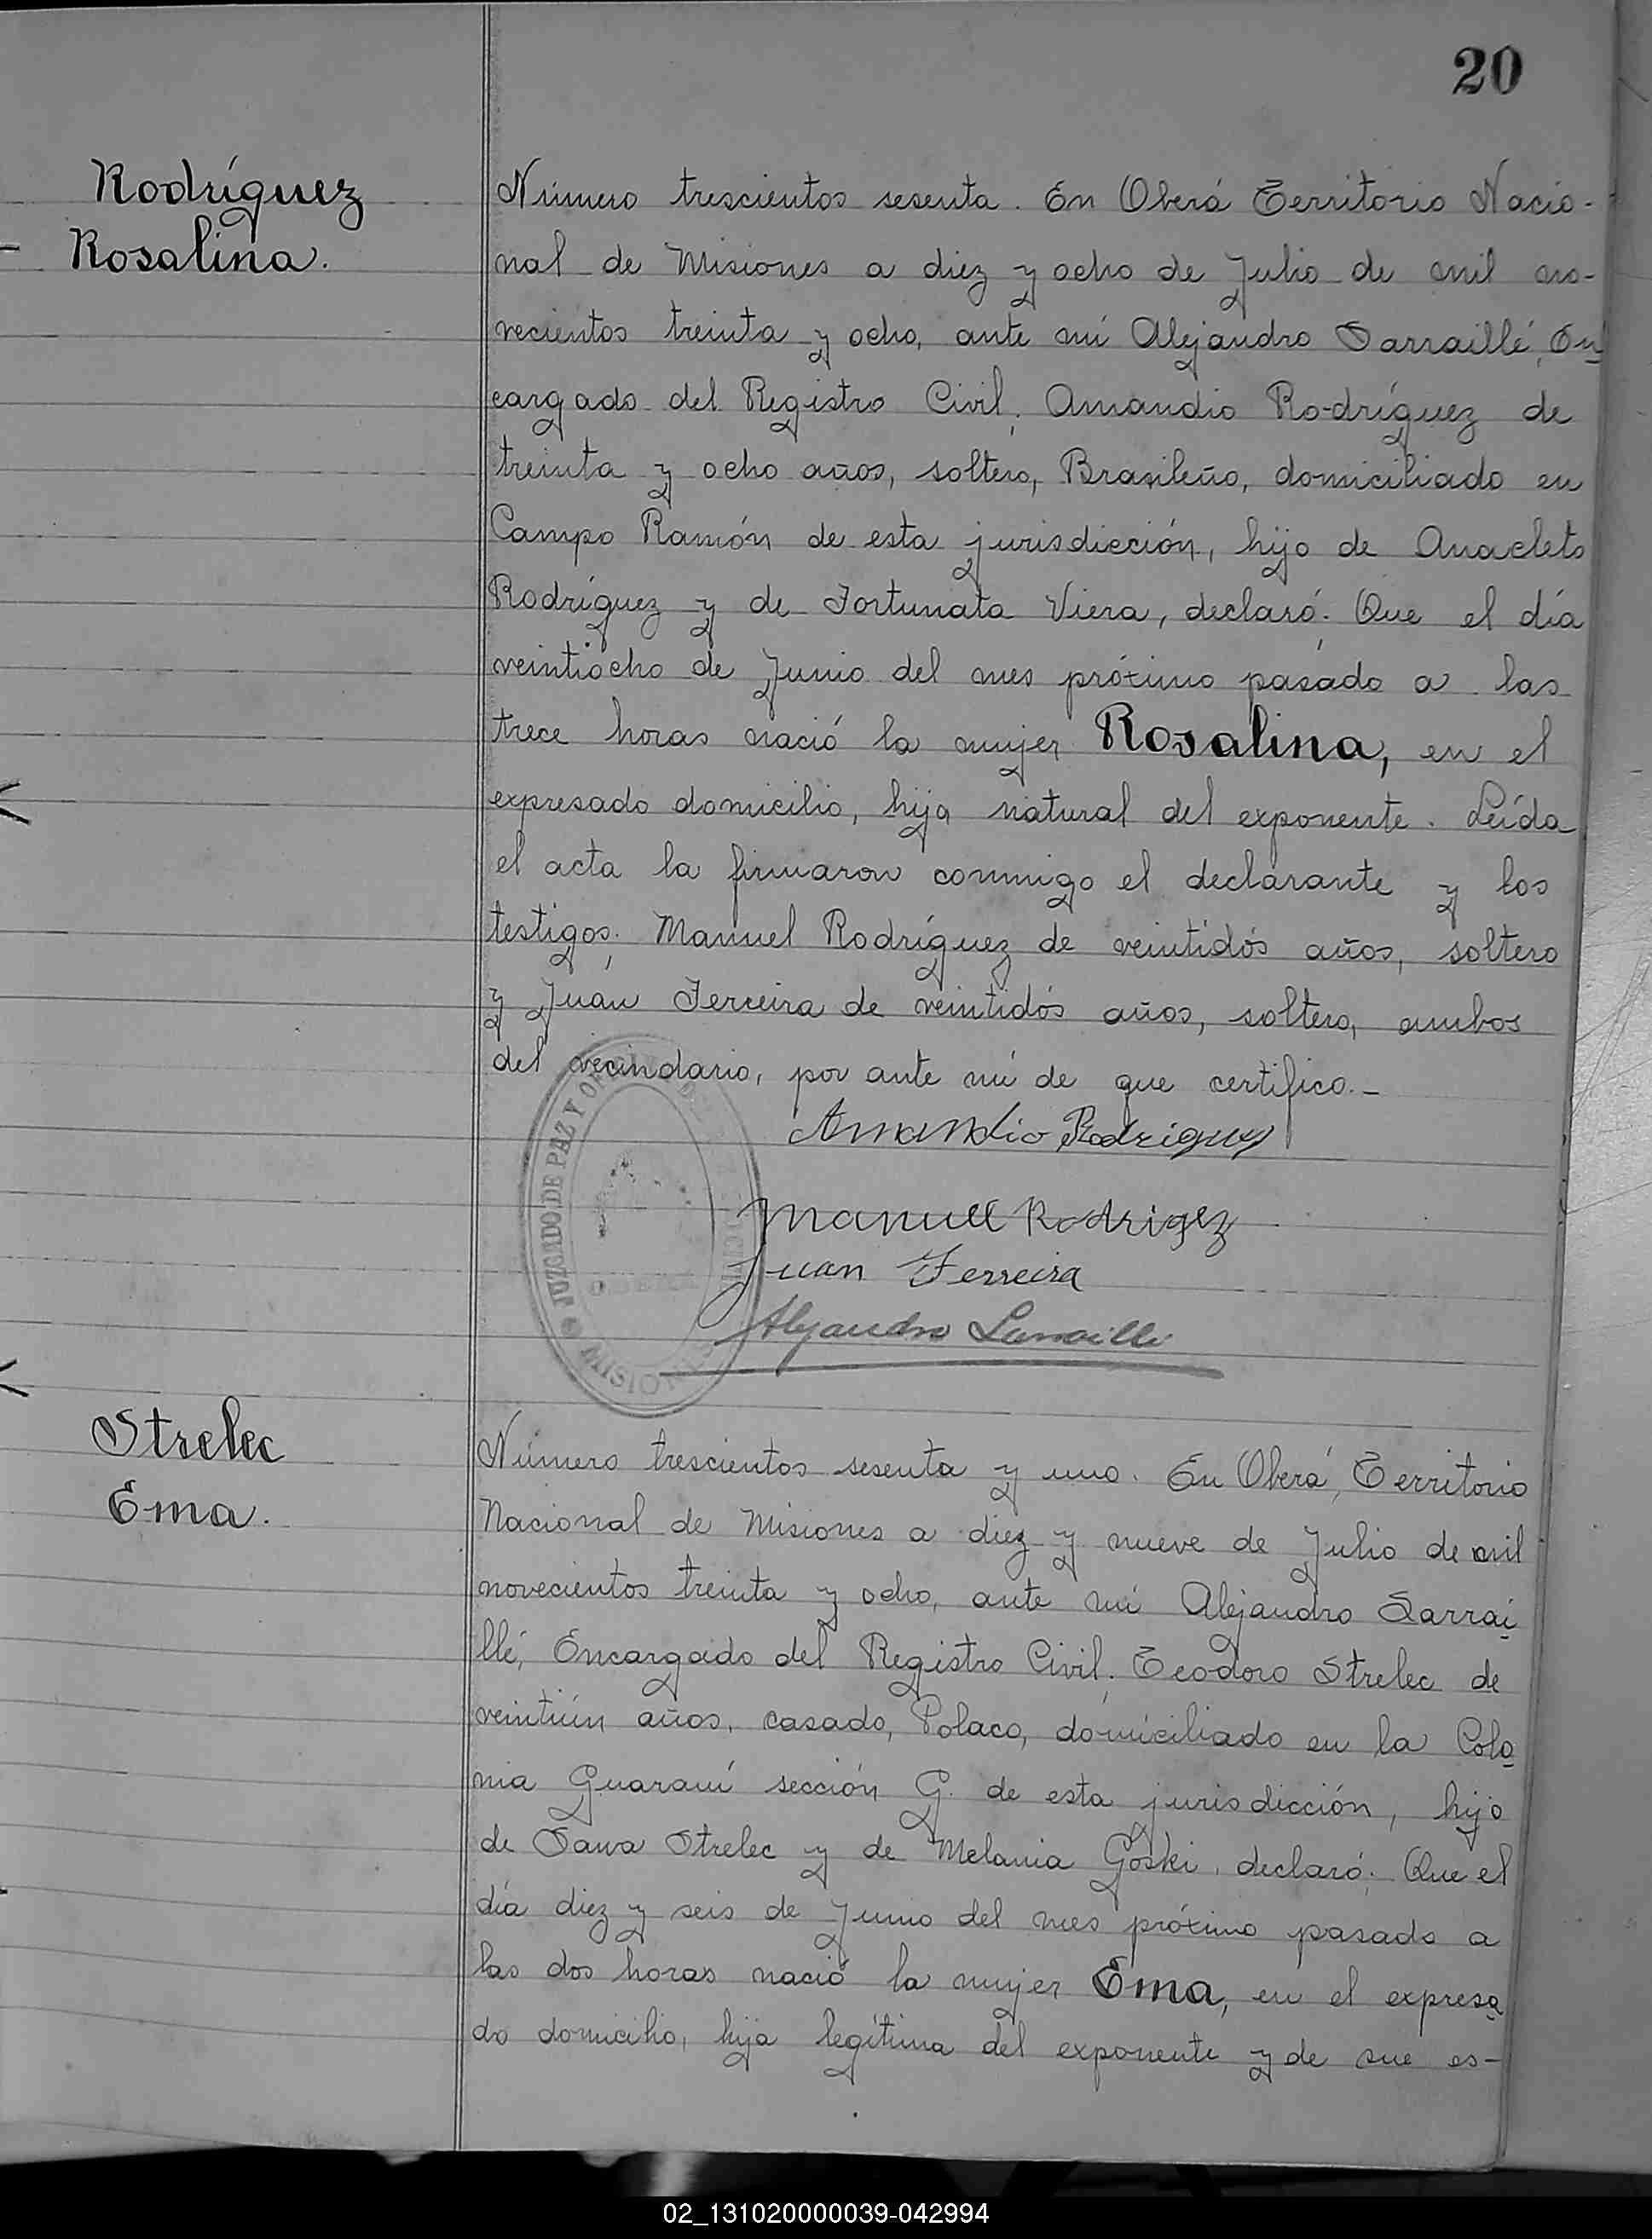 20
Rodríguez
Rosalina.
Número trescientos sesenta. En Oberá Territorio Nacio-
nal de Misiones a diez y ocho de Julio de mil no-
vecientos treinta y ocho, ante mí Alejandro Sarraillé, En
cargado del Registro Civil, Amandio Rodríguez de
treinta y ocho años, soltero, Brasileño, domiciliado en
Campo Ramón de esta jurisdicción, hijo de Anacleto
Rodríguez y de Fortunata Viera, declaró: Que el día
veintiocho de Junio del mes próximo pasado a las
trece horas nació la mujer Rosalina, en el
expresado domicilio, hija natural del exponente. Leída
el acta la firmaron conmigo el declarante y los
testigos, Manuel Rodríguez de veintidós años, soltero
y Juán Ferreira de veintidós años, soltero, ambos
del vecindario, por ante mí de que certifico.-
Amandio Rodriguez
Manuel Rodrigez
Juan Ferreira
Alejandro Sarraillé
JUZGADO DE PAZ Y
MISIONES
Strelec
Ema.
Número trescientos sesenta y uno. En Oberá, Territorio
Nacional de Misiones a diez y nueve de Julio de mil
novecientos treinta y ocho, ante mí Alejandro Sarrai
llé, Encargado del Registro Civil, Teodoro Strelec de
veintiún años, casado, Polaco, domiciliado en la Colo
nia Guaraní sección G. de esta jurisdicción, hijo
de Sawa Strelec y de Melania Goski, declaró: Que el
día diez y seis de Junio del mes próximo pasado a
las dos horas nació la mujer Ema, en el expresa
do domicilio, hija legítima del exponente y de sue es-
02_131020000039-042994